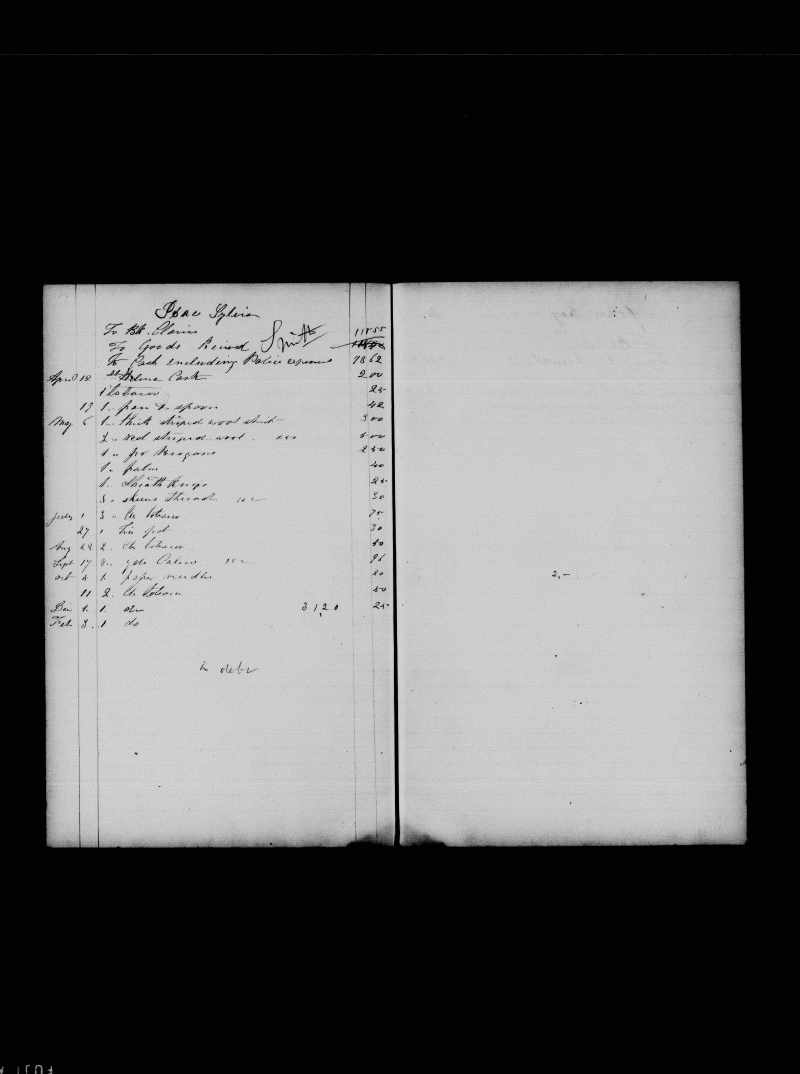 Isac Sylvia
To Bk. Claim 11855
To Goods Smith
To Cash including Police expenses 7862
April 12 St Helena Cash 200
1 tobacco 25
13 1 " pan & spoon 42
May 6 1 " thick striped wool shirt 300
2 " Red striped wool 500
1 " pr Brogans 250
1 " palm 40
1 " Sheath knife 25
3 " skeins thread 30
July 1 3 " lbs tobacco 75
27 1 tin pot 30
Aug 22 2 " lbs tobacco 50
Sept 17 yds Calico 96
Oct 4 1 " paper needles 20
11 2 " lbs tobacco 50
Dec 1 1 " do 3120 25
Feb 3 . 1 do
in debt
2.-